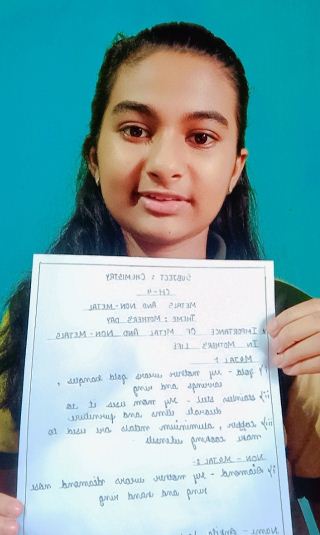 SUBJECT : CHEMISTRY
CH-4
METALS AND NON-METAL
THEME : MOTHER'S DAY
IMPORTANCE OF METAL AND NON-METALS
IN MOTHER'S LIFE
METAL 1
i) Gold - My mother wears gold bangle,
earrings and ring
ii) stainless steel - My mom uses it to
utensils and furniture
iii) copper, aluminium metals are used to
make cooking utensils
NON-METAL :-
i) Diamond - My mother wears diamond nose
ring and hand ring
Name -